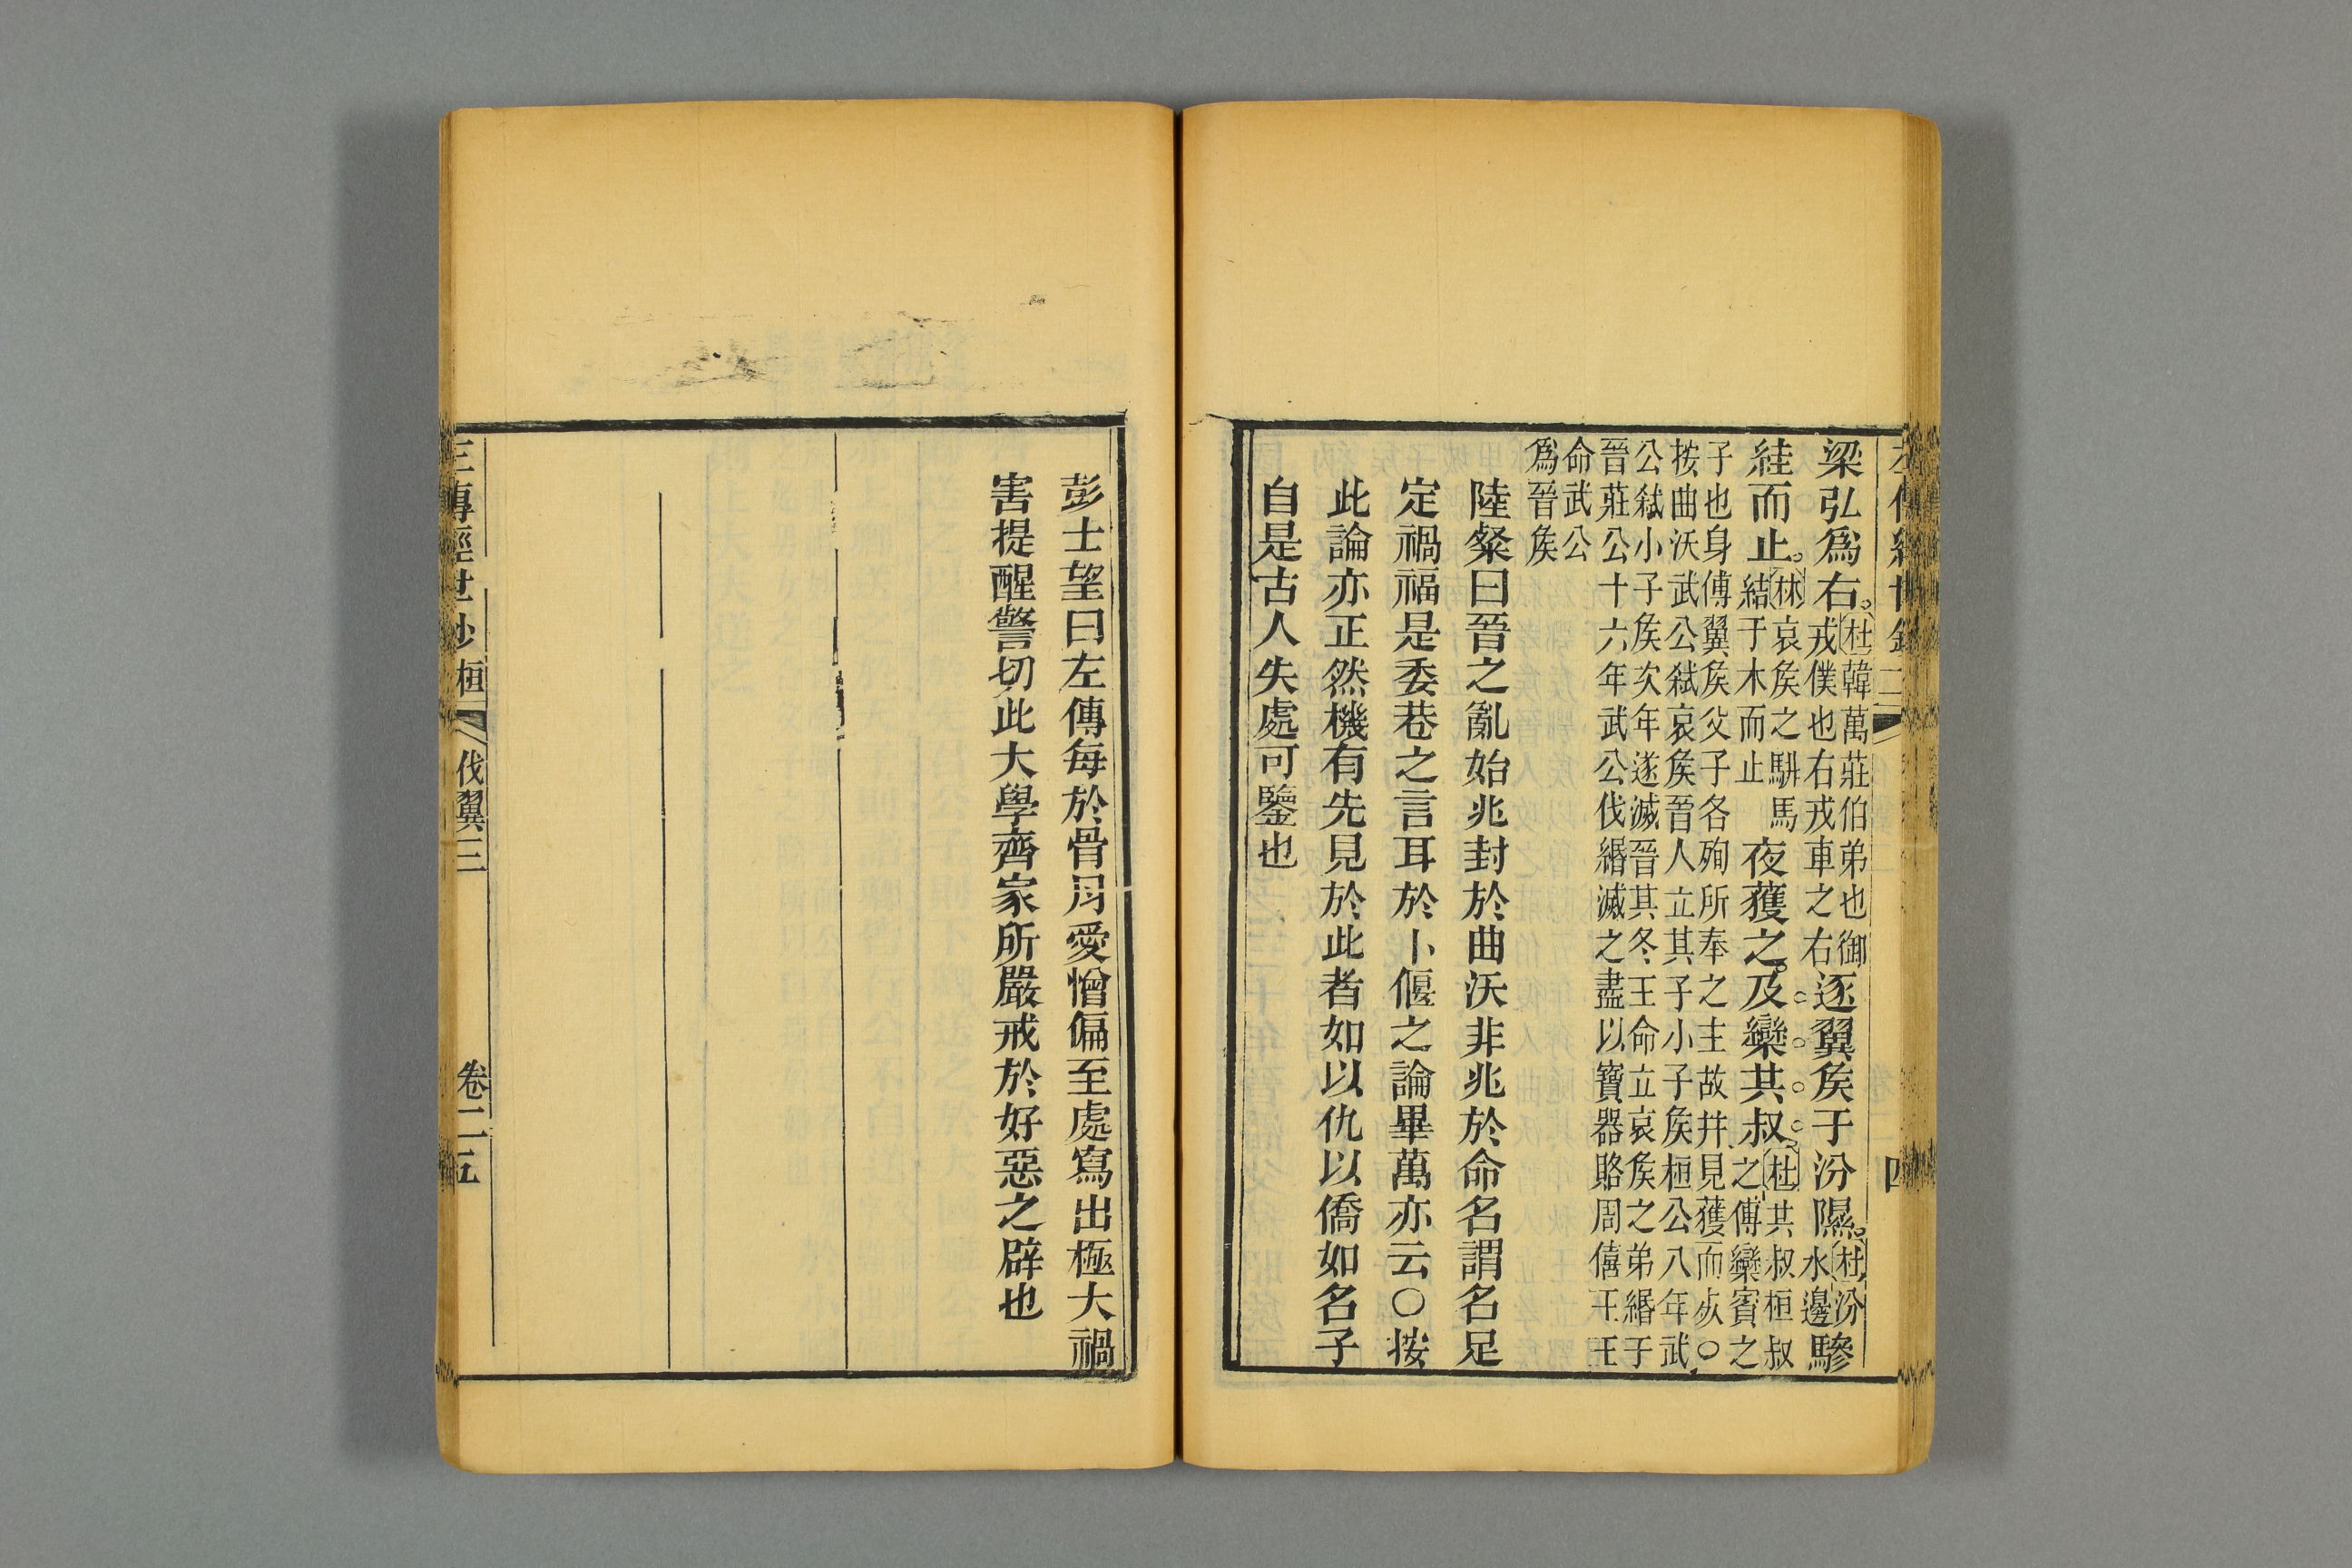 梁弘爲右。杜韓萬莊伯弟也御戎僕也右戎車之右逐翼矦于汾隰。杜汾水邊驂
絓而止。林哀矦之駢馬結于木而止夜獲之。及欒共叔。杜共叔桓叔之傅欒賓之
子也身傅翼矦父子各殉所奉之主故幷見獲而死○
按曲沃武公弑哀矦晉人立其子小子矦桓公八年武
公弑小子矦次年遂滅晉其冬王命立哀矦之弟緡于
晉莊公十六年武公伐緡滅之盡以寶器賂周僖王王
命武公
爲晉矦
陸粲曰晉之亂始兆封於曲沃非兆於命名謂名足
定禍福是委巷之言耳於卜偃之論畢萬亦云○按
此論亦正然機有先見於此者如以仇以僑如名子
自是古人失處可鑒也
彭士望曰左傳每於骨肉愛憎偏至處寫出極大禍
害提醒警切此大學齊家所嚴戒於好惡之辟也
傳經世鈔 桓 伐翼三 卷二 五